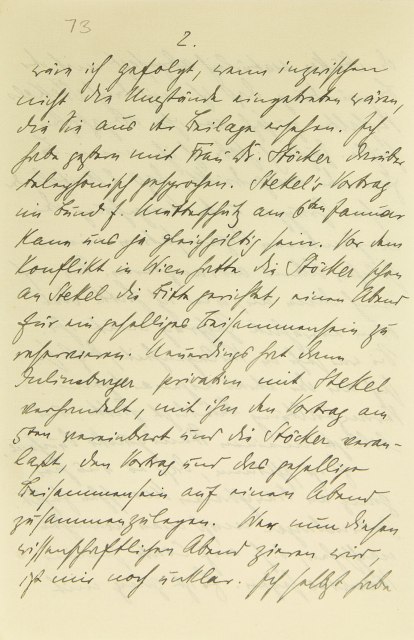 73
2.
wäre ich gefolgt, wenn inzwischen
nicht die Umstände eingetreten wären,
die Sie aus der Beilage ersehen. Ich
habe gestern mit Frau Dr. Stöcker darüber
telephonisch gesprochen. Stekel's Vortrag
im Bund f. Mutterschutz am 6ten Januar
kann uns ja gleichgiltig sein. Vor dem
Konflikt in Wien hatte die Stöcker schon
an Stekel die Bitte gerichtet, einen Abend
für ein geselliges Beisammensein zu
reservieren. Neuerdings hat dann
Juliusburger privatim mit Stekel
verhandelt, mit ihm den Vortrag am
5ten vereinbart und die Stöcker veran-
laßt, den Vortrag und das gesellige
Beisammensein auf einen Abend
zusammenzulegen. Wer nun diesen
wissenschaftlichen Abend zieren wird,
ist mir noch unklar. Ich selbst habe